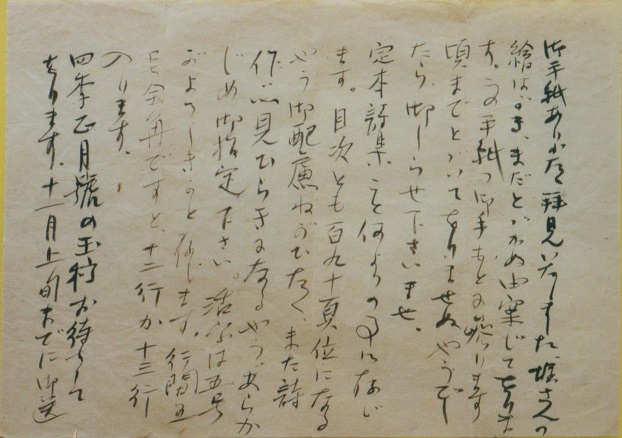 御手紙ありがたく拝見いたしました。堀さんの
繪はがき、まだとどかぬ由案じてをりま
す。この手紙 御手もとに参ります
頃までとどいてをりませぬやうでし
たら御しらせ下さいませ。
定本詩集、こと何よりの事に存じ
ます。目次とも百九十頁位になる
やう御配慮ねがひたく、また詩
作が見ひらきになるやう、あらか
じめ御指定下さい。活字は五号
がよろしきかと存じます。行間五
号全角ですと、十二行か十三行
のります。
四季正月號の玉稿お待ちして
をります。十一月上旬までに御送